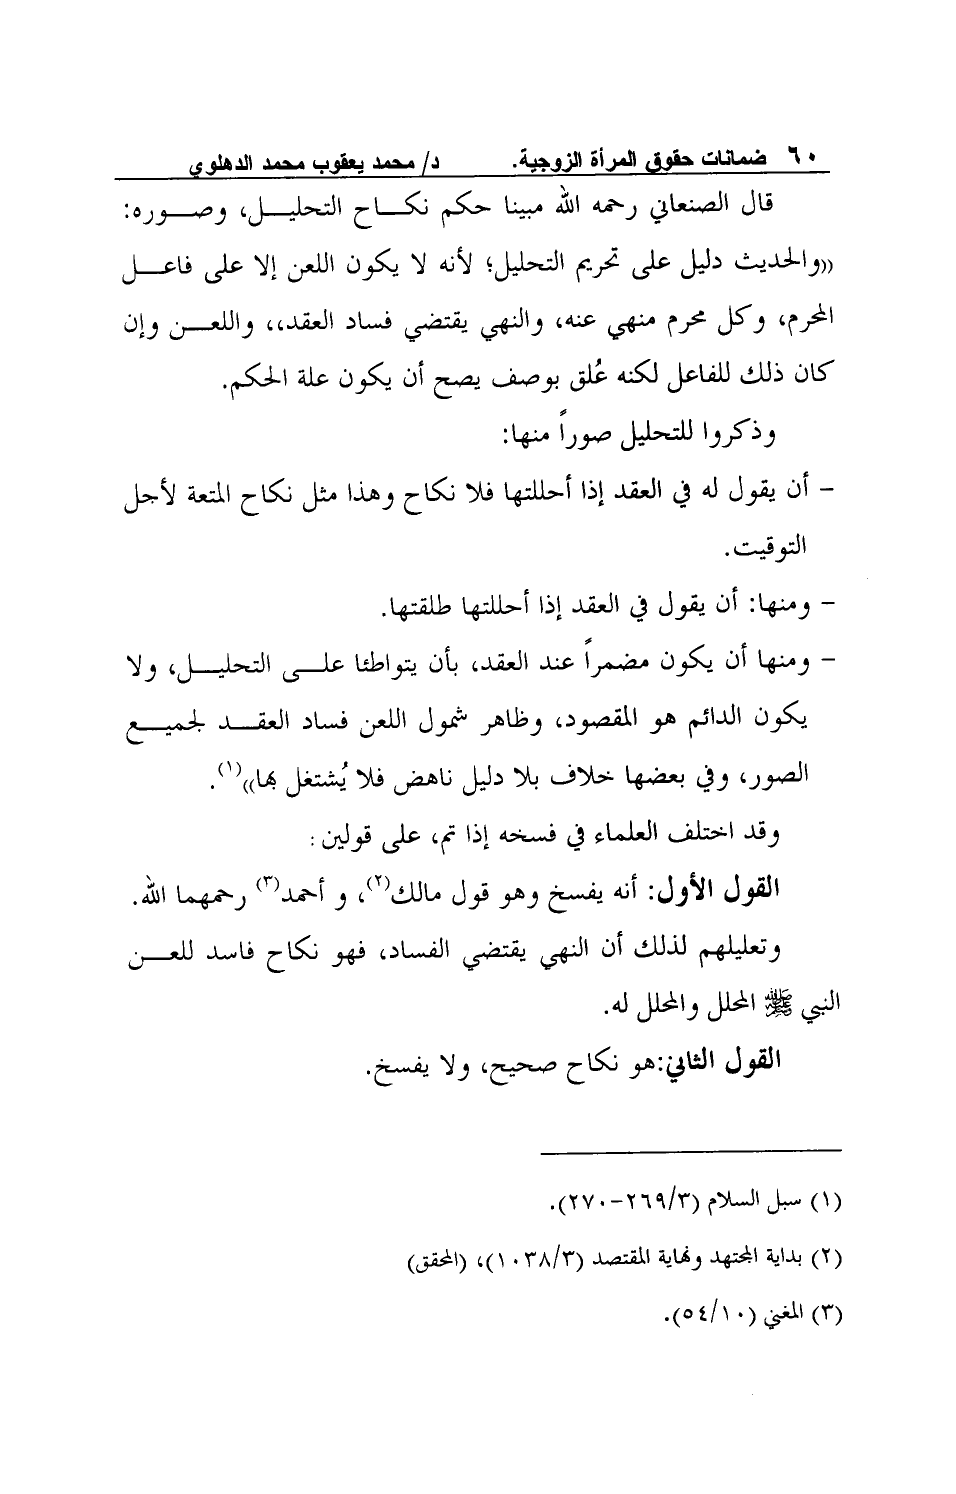 ٦٠ ضمانات حقوق المرأة الزوجية. د/ محمد يعقوب محمد الدهلوي
قال الصنعاني رحمه الله مبينا حكم نكاح التحليل، وصوره:
((والحديث دليل على تحريم التحليل؛ لأنه لا يكون اللعن إلا على فاعل
المحرم، وكل محرم منهي عنه، والنهي يقتضي فساد العقد،، واللعن وإن
كان ذلك للفاعل لكنه عُلق بوصف يصح أن يكون علة الحكم.
وذكروا للتحليل صوراً منها:
- أن يقول له في العقد إذا أحللتها فلا نكاح وهذا مثل نكاح المتعة لأجل
التوقيت.
- ومنها: أن يقول في العقد إذا أحللتها طلقتها.
- ومنها أن يكون مضمراً عند العقد، بأن يتواطئا على التحليل، ولا
يكون الدائم هو المقصود، وظاهر شمول اللعن فساد العقد لجميع
الصور، وفي بعضها خلاف بلا دليل ناهض فلا يُشتغل بها))(١).
وقد اختلف العلماء في فسخه إذا تم، على قولين:
القول الأول: أنه يفسخ وهو قول مالك(٢)، و أحمد(٣) رحمهما الله.
وتعليلهم لذلك أن النهي يقتضي الفساد، فهو نكاح فاسد للعن
النبي ﷺ المحلل والمحلل له.
القول الثاني:هو نكاح صحيح، ولا يفسخ.
(١) سبل السلام (٢٦٩/٣-٢٧٠).
(٢) بداية المجتهد ونهاية المقتصد (١٠٣٨/٣)، (المحقق)
(٣) المغني (٥٤/١٠).